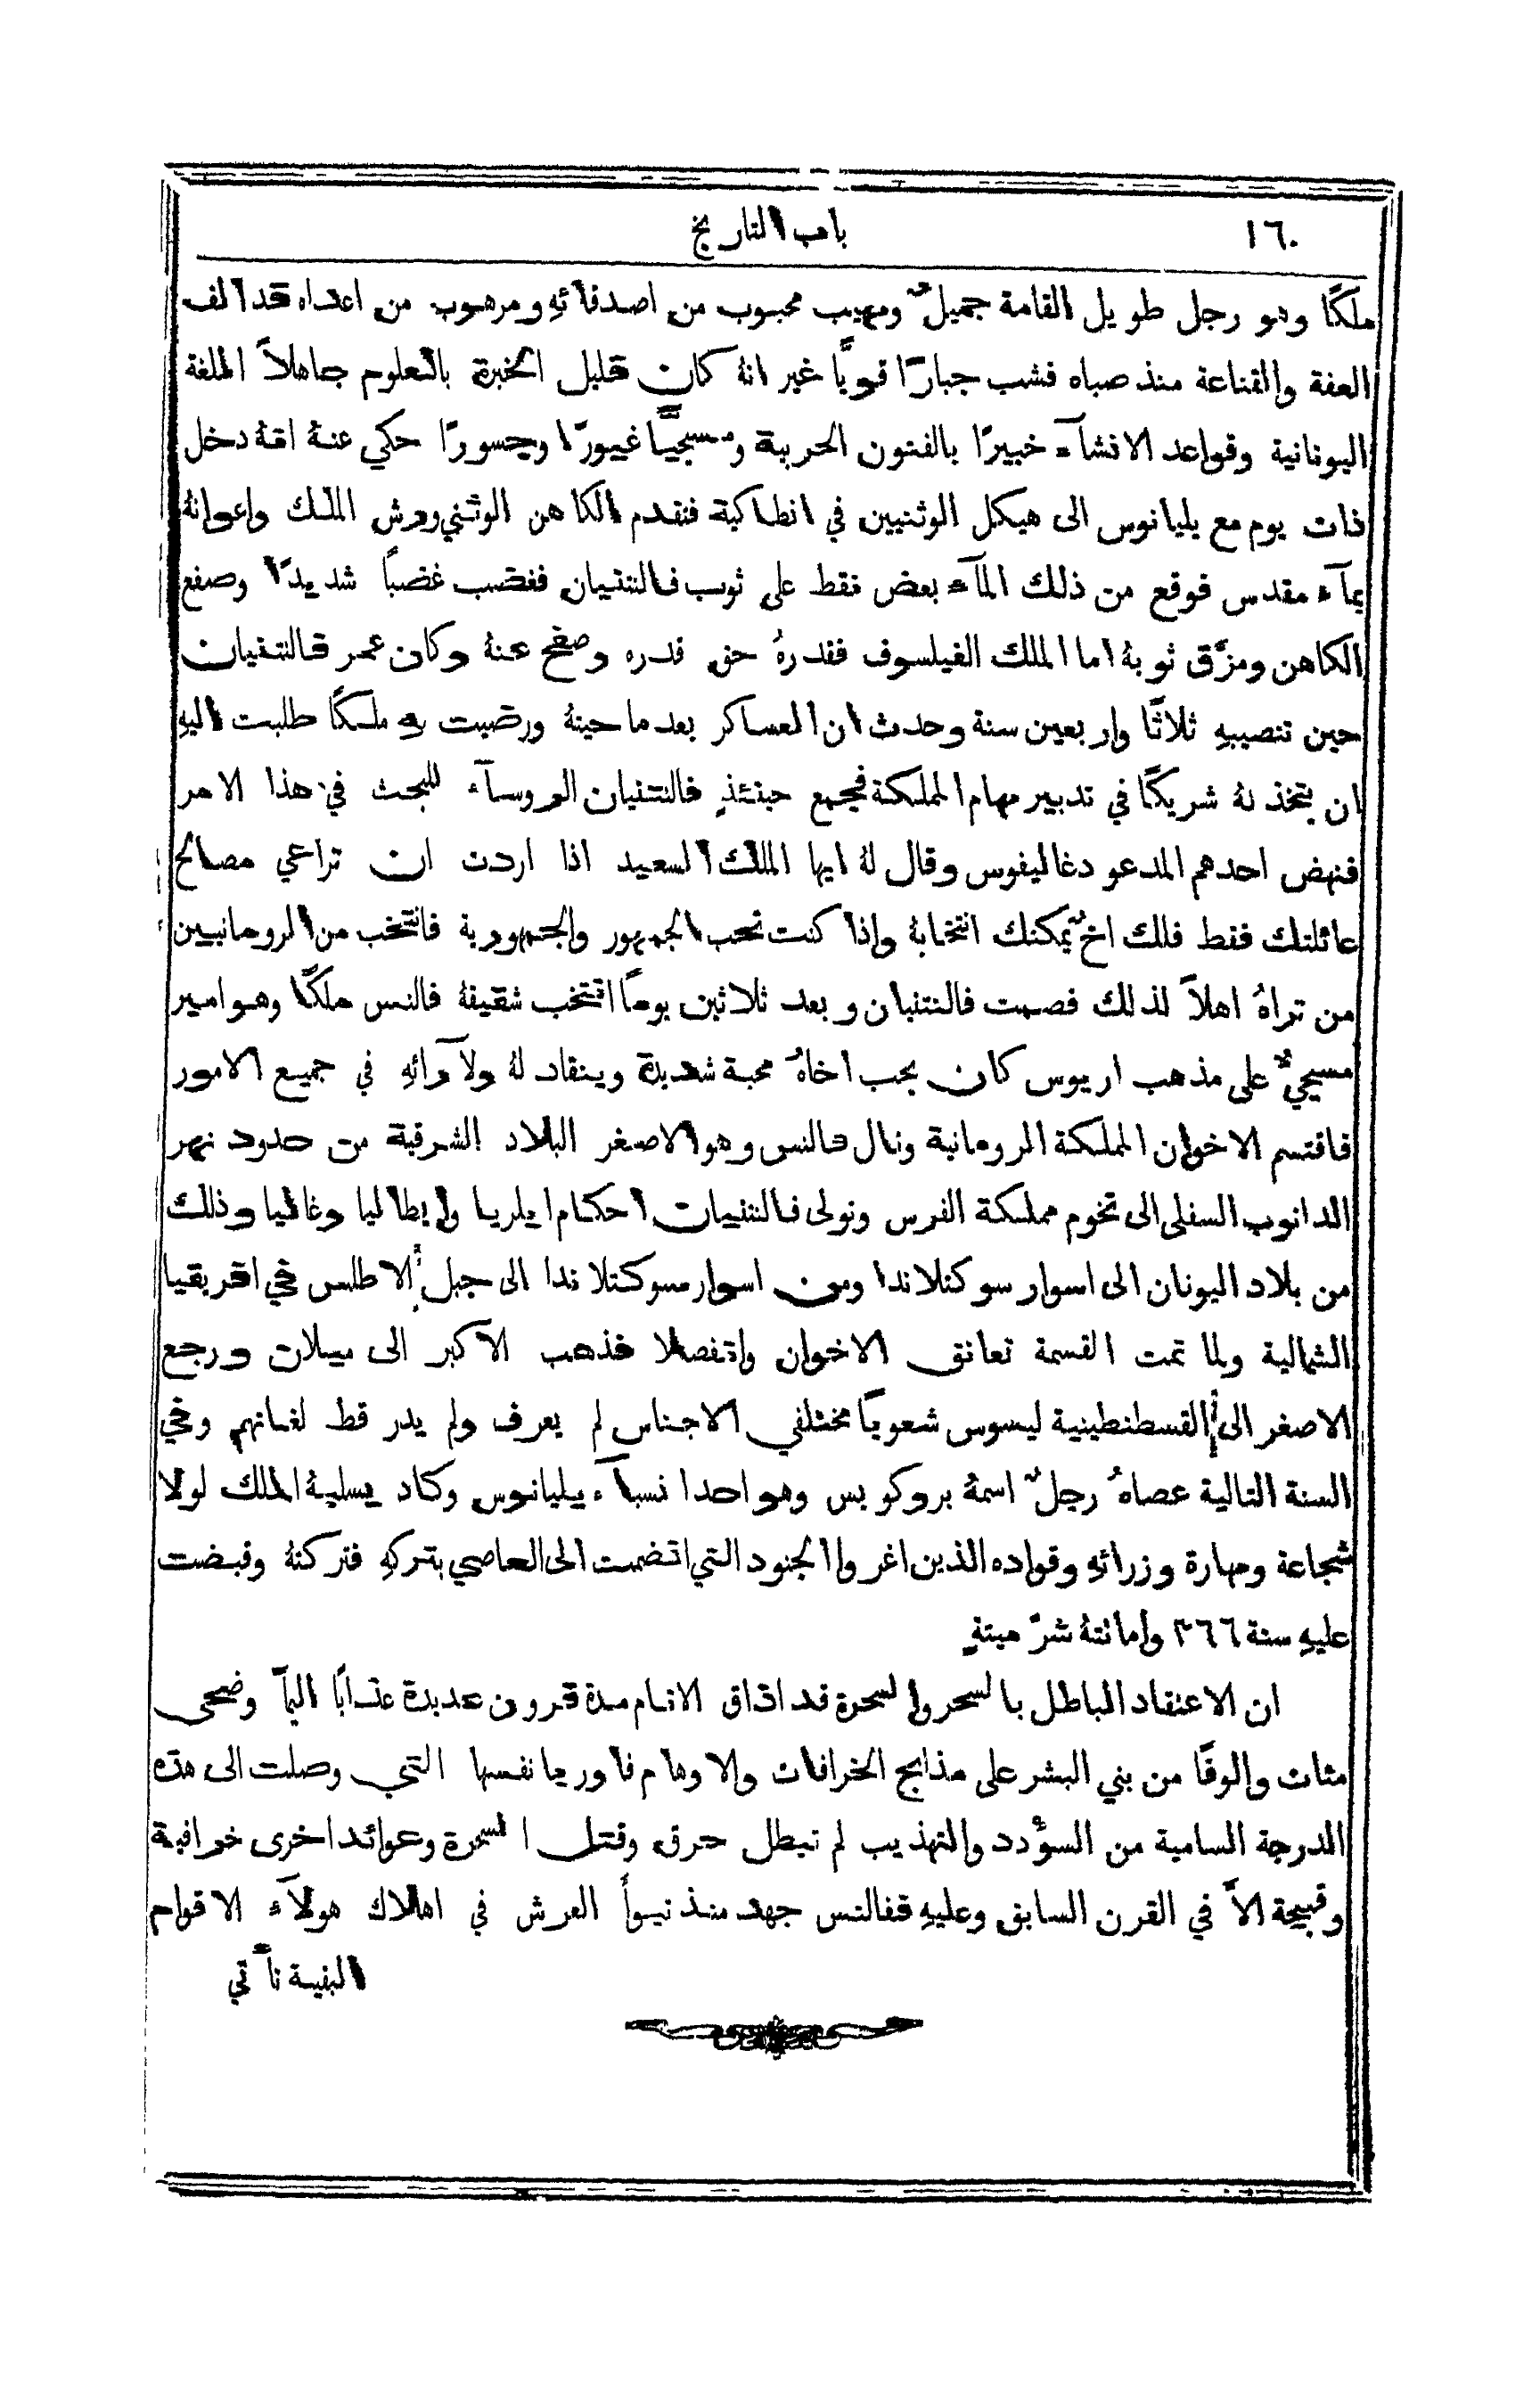 ١٦٠ باب التاريخ
ملكًا وهو رجل طويل القامة جميلٌ ومهيب محبوب من اصدقائهِ ومرهوب من اعداه قد الف
العفة والقناعة منذ صباه فشب جبارًا قويًّا غير انهُ كان قليل الخبرة بالعلوم جاهلاً اللغة
اليونانية وقواعد الانشآء خبيرًا بالفنون الحربية ومسيحيًّا غيورًا وجسورًا حكي عنهُ انهُ دخل
ذات يوم مع يليانوس الى هيكل الوثنيين في انطاكية فتقدم الكاهن الوثني ورش الملك واعوانهُ
بمآء مقدس فوقع من ذلك المآء بعض نقط على ثوب فالنتنيان فغضب غضباً شديدًا وصفع
الكاهن ومزَّق ثوبهُ اما الملك الفيلسوف فقدرهُ حق قدره وصفح عنهُ وكان عمر فالنتنيان
حين تنصيبهِ ثلاثًا واربعين سنة وحدث ان العساكر بعد ما حيتهُ ورضيت بهِ ملكًا طلبت اليهِ
ان يتخذ لهُ شريكًا في تدبير مهام المملكة فجمع حينئذٍ فالنتنيان الروسآء للبحث في هذا الامر
فنهض احدهم المدعو دغاليفوس وقال لهُ ايها الملك السعيد اذا اردت ان تراعي مصالح
عائلتك فقط فلك اخٌ يمكنك انتخابهُ واذا كنت تحب الجمهور والجمهورية فانتخب من الرومانيين
من تراهُ اهلاً لذلك فصمت فالنتنيان وبعد ثلاثين يومًا انتخب شقيقهُ فالنس ملكًا وهو امير
مسيحيٌّ على مذهب اريوس كان يحب اخاهُ محبة شديدة وينقاد لهُ ولآرائهِ في جميع الامور
فاقتسم الاخوان المملكة الرومانية ونال فالنس وهو الاصغر البلاد الشرقية من حدود نهر
الدانوب السفلى الى تخوم مملكة الفرس وتولى فالنتنيان احكام ايلريا وايطاليا وغاليا وذلك
من بلاد اليونان الى اسوار سوكتلاندا ومن اسوار سوكتلاندا الى جبل الاطلس في افريقيا
الشمالية ولما تمت القسمة تعانق الاخوان وانفصلا فذهب الاكبر الى ميلان ورجع
الاصغر الى القسطنطينية ليسوس شعوبًا مختلفي الاجناس لم يعرف ولم يدر قط لغاتهم وفي
السنة التالية عصاهُ رجلٌ اسمهُ بروكوبس وهو احد انسبآء يليانوس وكاد يسلبهُ الملك لولا
شجاعة ومهارة وزرائهِ وقواده الذين اغروا الجنود التي انضمت الى العاصي بتركهِ فتركتهُ وقبضت
عليهِ سنة ٣٦٦ واماتتهُ شرَّ ميتةٍ
ان الاعتقاد الباطل بالسحر والسحرة قد اذاق الانام مدة قرون عديدة عذابًا اليمًا وضحى
مئات والوفًا من بني البشر على مذابح الخرافات والاوهام فاوربا نفسها التي وصلت الى هذه
الدرجة السامية من السؤدد والتهذيب لم تبطل حرق وقتل السحرة وعوائد اخرى خرافية
وقبيحة الاَّ في القرن السابق وعليهِ ففالنس جهد منذ تبوأ العرش في اهلاك هولآء الاقوام
البقية تأتي